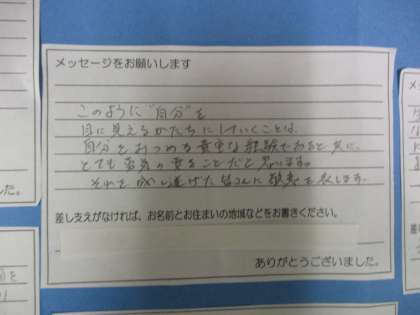 メッセージをお願いします
このように"自分"を
目に見えるかたちにしていくことは、
自分を見つめる貴重な経験であると共に、
とても勇気の要ることだと思います。
それを成し遂げた皆さんに敬意を表します。
差し支えがなければ、お名前とお住まいの地域などをお書きください。
ありがとうございました。
した。